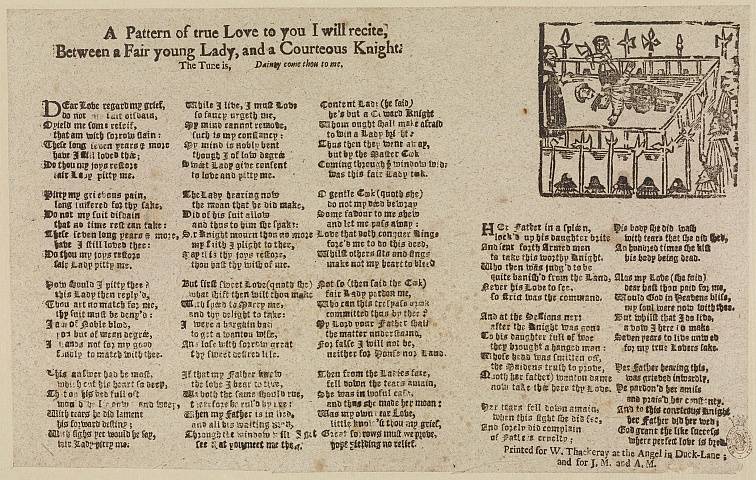 A Pattern of true Love to you I will recite,
Between a Fair young Lady, and a Courteous Knight.
The Tune is, Dainty come thou to me.
DEar Love regard my grief,
do not my suit disdain,
O yield me some releif,
that am with sorrow slain:
These long seven years & more
have I still loved thee;
Do thou my joys restore
fair Lady pitty me.
Pitty my grievous pain,
long suffered for thy sake.
Do not my suit disdain
that no time rest can take:
These seven long years & more,
have I still loved thee:
Do thou my joys restore,
fair Lady pitty me.
How should I pitty thee?
this Lady then reply'd,
Thou art no match for me,
thy suit must be deny'd:
I am of Noble blood,
you but of mean degree,
It stands not for my good
fondly to match with thee.
This answer had he most,
which cut his heart so deep,
That on his bed full oft
would he and weep;
With tears he did lament
his forward destiny;
With sighs yet would he say,
fair Lady pitty me.
While I live, I must Love
so fancy urgeth me,
My mind cannot remove,
such is my constancy:
My mind is nobly bent
though I of low degree
Sweet Lady give consent
to love and pitty me.
The Lady hearing now
the moan that he did make,
Did of his suit allow
and thus to him she spake:
Sir Knight mourn thou no more
my faith I plight to thee,
that is thy joys restore,
thou hast thy wish of me.
But first sweet Love (quoth she)
what shift then wilt thou make
With speed to Marry me,
and thy delight to take:
I were a bargain bad
to get a wanton wife,
And lose with sorrow great
thy sweet desired life.
If that my Father knew
the love I bear to thee,
We both the same should rue,
therefore be rul'd by me:
When my Father is in bed,
and all his waiting men,
Through the window will I get
see that you meet me then.
Content Lady (he said)
he's but a Coward Knight
Whom ought shall make afraid
to win a Lady bright:
Thus then they went away,
but by the Master Cook
Coming through the window wide
was this fair Lady took.
O gentle Cook (quoth she)
do not my deed bewray
Some favour to me shew
and let me pass away:
Love that doth conquer Kings
forc'd me to do this deed,
Whilst others sits and sings
make not my heart to bleed
Not so (then said the Cook)
fair Lady pardon me,
Who can this trespass brook
committed thus by thee?
My Lord your Father shall
the matter understand,
For false I will not be,
neither for House nor Land.
Then from the Ladies face,
fell down the tears amain,
She was in woful case,
and thus she made her moan:
O my own dear Love,
little know'st thou my grief,
Great sorrows must we prove,
hope yielding no relief.
HEr Father in a spleen,
lock'd up his daughter bright
And sent forth Armed men
to take this worthy Knight.
Who then was judg'd to be
quite banish'd from the Land,
Never his Love to see,
so strict was the command.
And at the Sessions next
after the Knight was gone
To his daughter full of woe
they brought a hanged man:
Whose head was smitten off,
the Maidens truth to prove,
Quoth her father) wanton dame
now take thee here thy Love.
Her tears fell down amain,
when this sight she did see,
And sorely did complain
of Fathers cruelty;
His body she did wash
with tears that she did shed,
An hundred times she kist
his body being dead.
Alas my Love (she said)
dear hast thou paid for me,
Would God in Heavens bliss,
my soul were now with thee.
But whilst that I do live,
a vow I here do make
Seven years to live unwed
for my true Lovers sake.
Her Father hearing this,
was grieved inwardly,
He pardon'd her amiss
and prais'd her constancy.
And to this courteous Knight
her Father did her wed;
God grant the like success
where perfect love is bred.
Printed for W. Thackeray at the Angel in Duck-Lane;
and for J. M. and A. M.